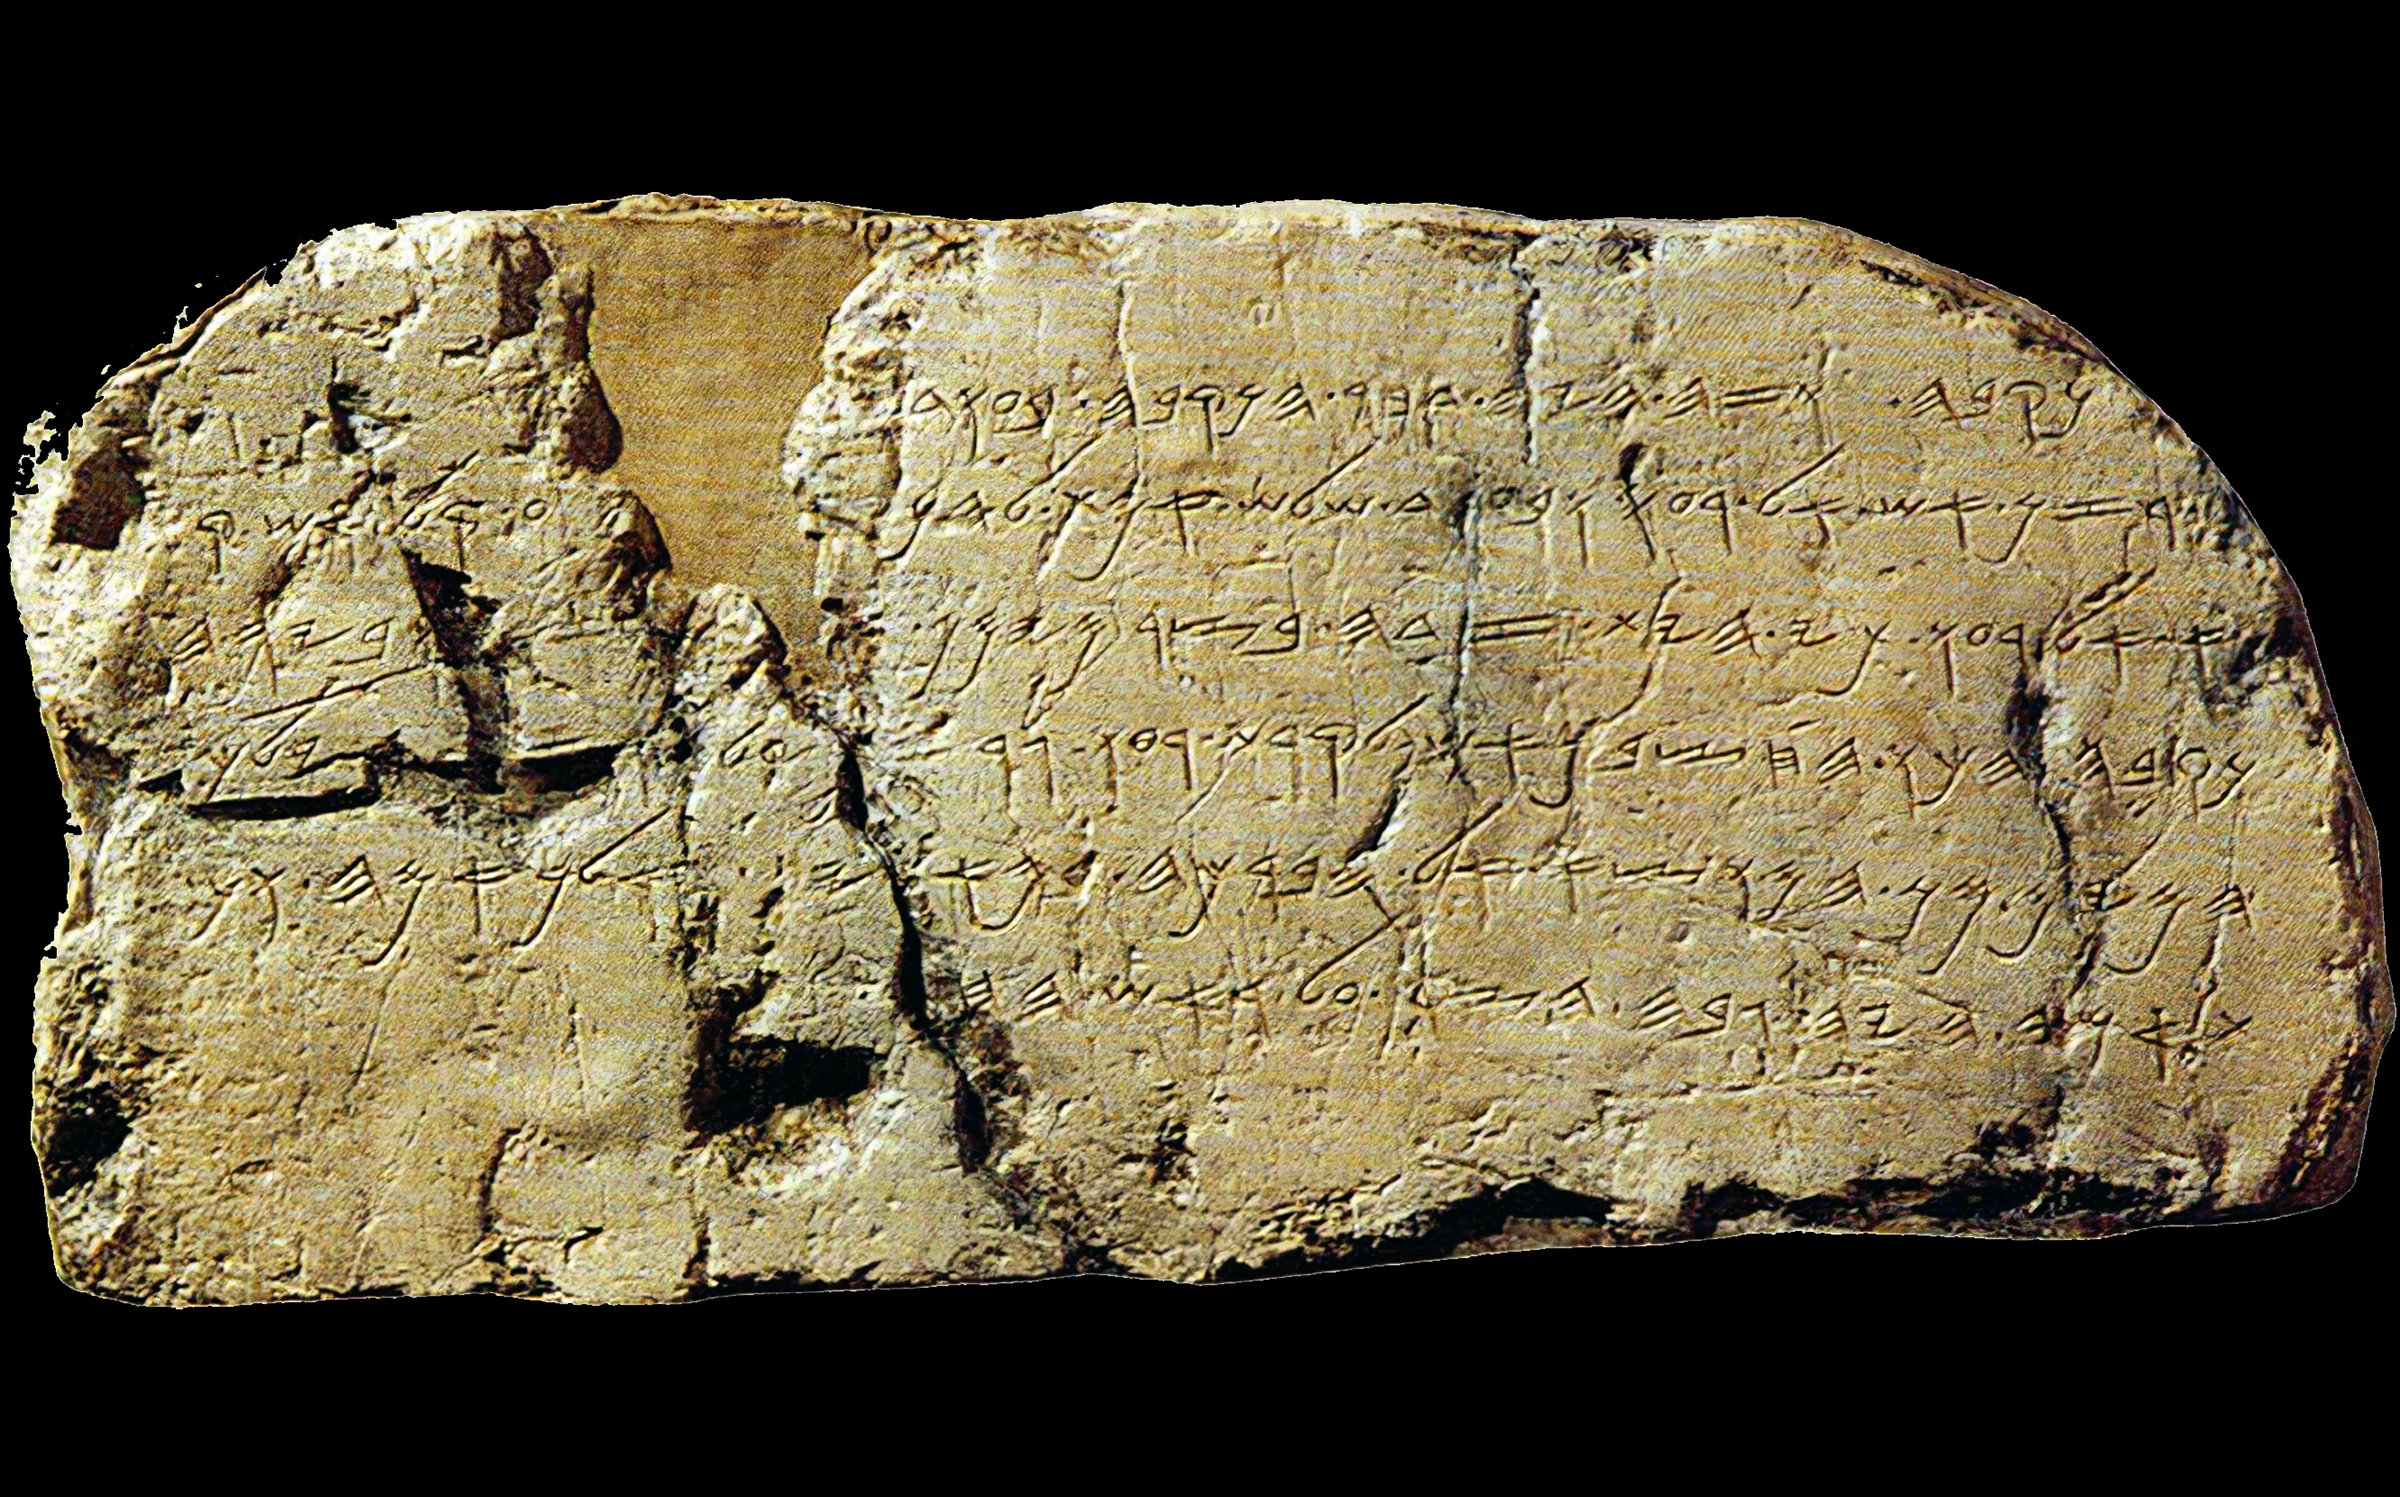 𐤍𐤒𐤁𐤄 . 𐤅𐤆𐤄 . 𐤄𐤉𐤄 . 𐤃𐤁𐤓 . 𐤄𐤍𐤒𐤁𐤄 . 𐤁𐤏𐤅𐤃
𐤓𐤆𐤍 . 𐤀𐤔 . 𐤀𐤋 . 𐤓𐤏𐤅 . 𐤅𐤁𐤏𐤅𐤃 . 𐤔𐤋𐤔 . 𐤀𐤌𐤕 . 𐤋𐤄𐤍 𐤏 . 𐤒𐤋 . 𐤀𐤔 . 𐤒
𐤀 . 𐤀𐤋 . 𐤓𐤏𐤅 . 𐤊𐤉 . 𐤄𐤉𐤕 . 𐤆𐤃𐤄 . 𐤁𐤑𐤓 . 𐤌𐤉𐤌𐤍 . 𐤅𐤁𐤉𐤌 . 𐤄
𐤍𐤒𐤁𐤄 . 𐤄𐤊𐤅 . 𐤄𐤇𐤑𐤁𐤌 . 𐤀𐤔 . 𐤋𐤒𐤓𐤕 . 𐤓𐤏𐤅 . 𐤂𐤓𐤆𐤍 . 𐤏𐤋 . 𐤓𐤆𐤍 . 𐤅𐤉𐤋𐤊𐤅
𐤄𐤌𐤉𐤌 . 𐤌𐤍 . 𐤄𐤌𐤅𐤑𐤀 . 𐤀𐤋 . 𐤄𐤁𐤓𐤊𐤄 . 𐤁𐤌𐤀𐤕𐤉𐤌 . 𐤅𐤀𐤋𐤐 . 𐤀𐤌𐤄 . 𐤅𐤌
𐤕 . 𐤀𐤌𐤄 . 𐤄𐤉𐤄 . 𐤂𐤁𐤄 . 𐤄𐤑𐤓 . 𐤏𐤋 . 𐤓𐤀𐤔 . 𐤄𐤇𐤑𐤁